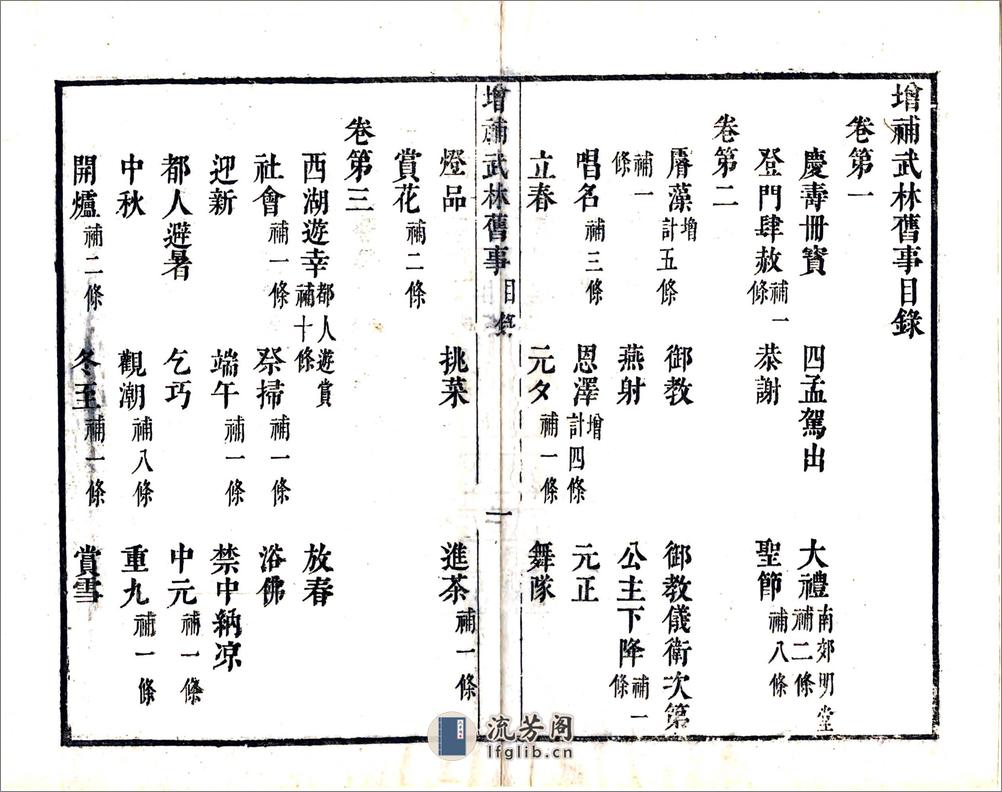 增補武林舊事目錄
卷第一
慶壽冊寶 四孟駕出 大禮南郊明堂補二條
登門肆赦補一條 恭謝 聖節補八條
卷第二
唇藻增計五條 御教 御教儀衛次第
補一條 燕射 公主下降補一條
唱名補三條 恩澤增計四條 元正
立春 元夕補一條 舞隊
增補武林舊事 目錄 一
燈品 挑菜 進茶補一條
賞花補二條
卷第三
西湖遊幸都人遊賞補十條 放春
社會補一條 祭掃補一條 浴佛
迎新 端午補一條 禁中納凉
都人避暑 乞巧 中元補一條
中秋 觀潮補八條 重九補一條
開爐補二條 冬至補一條 賞雪
流芳阁
lfglib.cn